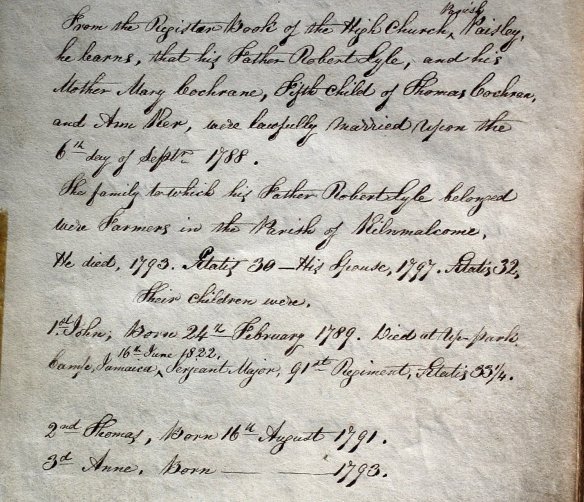 From the Register Book of the High Church, Parish Paisley,
he learns, that his Father Robert Lyle, and his
Mother Mary Cochrane, Fifth Child of Thomas Cochran,
and Ann Ker, were lawfully married upon the
6th day of Septr. 1788.
The family to which his Father Robert Lyle belonged
were Farmers in the Parish of Kilnmalcome.
He died, 1793. Ætatis 30 — His Spouse, 1797. Ætatis 32,
Their children were.
1st John; Born 24th February 1789. Died at Up-Park
Camp, Jamaica, 16th June 1822. Serjeant Major, 91st Regiment, Ætatis 33 1/4.
2nd Thomas, Born 16th August 1791.
3d Anne. Born ——— 1793.